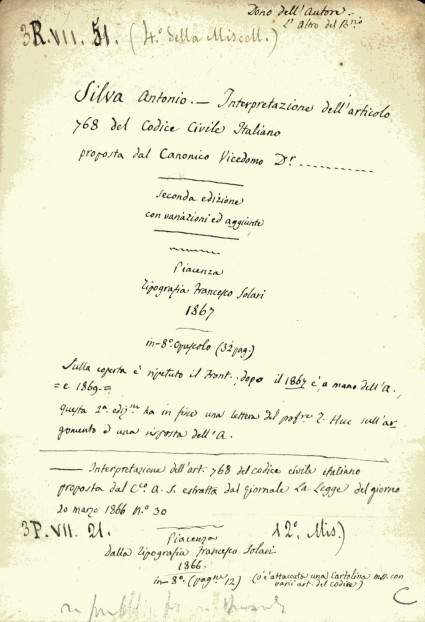 Dono dell'Autore.
L'Altro del B.no
3R.VII. 51. (4.° della Miscell.)
Silva Antonio. — Interpretazione dell'articolo
768 del Codice Civile Italiano
proposta dal Canonico Vicedomo D.r ----------
seconda edizione
con variazioni ed aggiunte
Piacenza
Tipografia Francesco Solari
1867
in-8.° Opuscolo (32 pag.)
Sulla coperta è ripetuto il Front.; dopo il 1867 è a mano dell'A.
= e 1869. =
questa 2.a ediz.ne ha in fine una lettera del prof.re T. Huc sull'ar-
gomento e una risposta dell'A.
— Interpretazione dell'art: 768 del codice civile italiano
proposta dal C.co A. S. estratta dal giornale La Legge del giorno
20 marzo 1866 N.° 30
3P.VII. 21. 12.° Mis.)
Piacenza
dalla Tipografia Francesco Solari
1866.
in-8.° (pagne 12) (v'è attaccata una Cartolina ms. con
varii art. del codice)
C